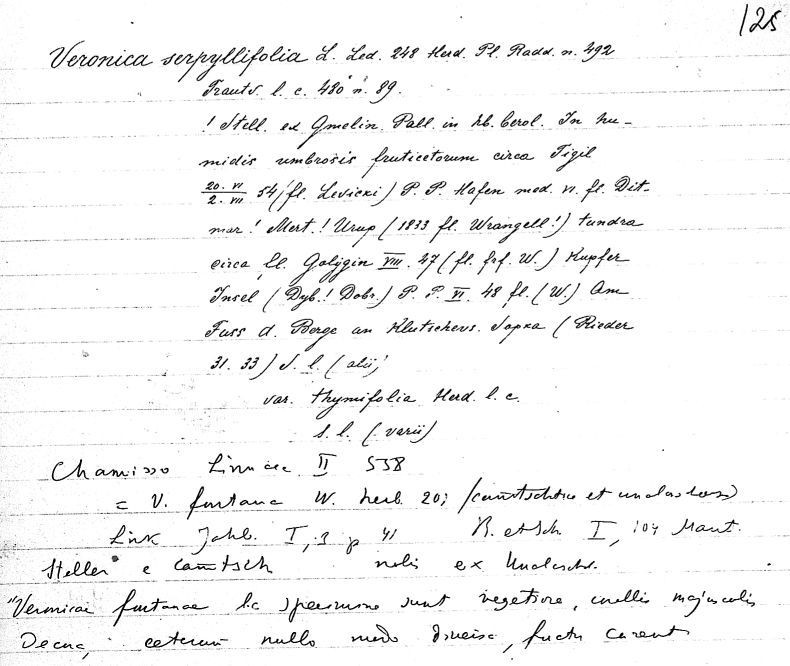 125
Veronica serpyllifolia L. Led. 248 Herd. Pl. Radd. n. 492
Trautv. l. c. 480 n. 89.
! Stell. ex Gmelin. Pall. in hb. berol. In hu-
midis umbrosis fruticetorum circa Tigil
20. VI / 2. VII 54 (fl. Levicki) P. P. Hafen med. VI. fl. Dit-
mar! Mert.! Urup (1833 fl. Wrangell!) tundra
circa fl. Golygin VIII. 47 (fl. frf. W.) Kupfer
Insel (Dyb.! Dobr.) P. P. VI. 48 fl. (W.) Am
Fuss d. Berge an Klutschevs. Sopka (Rieder
31. 33) S. l. (alii)
var. thymifolia Herd. l. c.
s. l. (varii)
Chamisso Linnaea II 558
= V. fontana W. herb. 20; (camtschtica et unalaschk)
Link Jahb. I, 3 p 41 R. et Sch. I, 104 Mant.
Steller e camtsch nobis ex Unalaschk.
"Veronicae fontanae l.c specimina sunt vegetiora, majusculis
ceterum nullo modo diversa, fructu carent